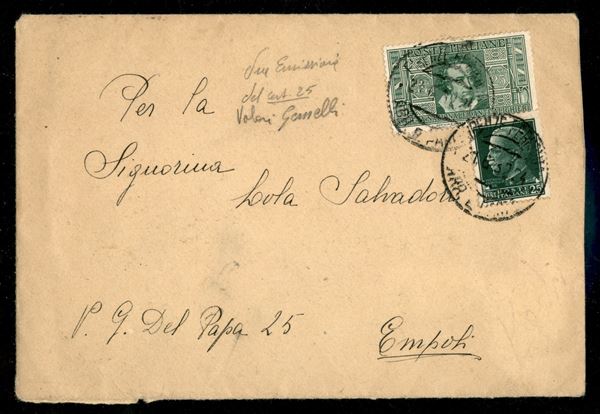 due Emissioni
del cent. 25
Valori Gemelli
POSTE ITALIANE
Per la
Signorina
Lola Salvadori
25
P. G. Del Papa 25
Empoli